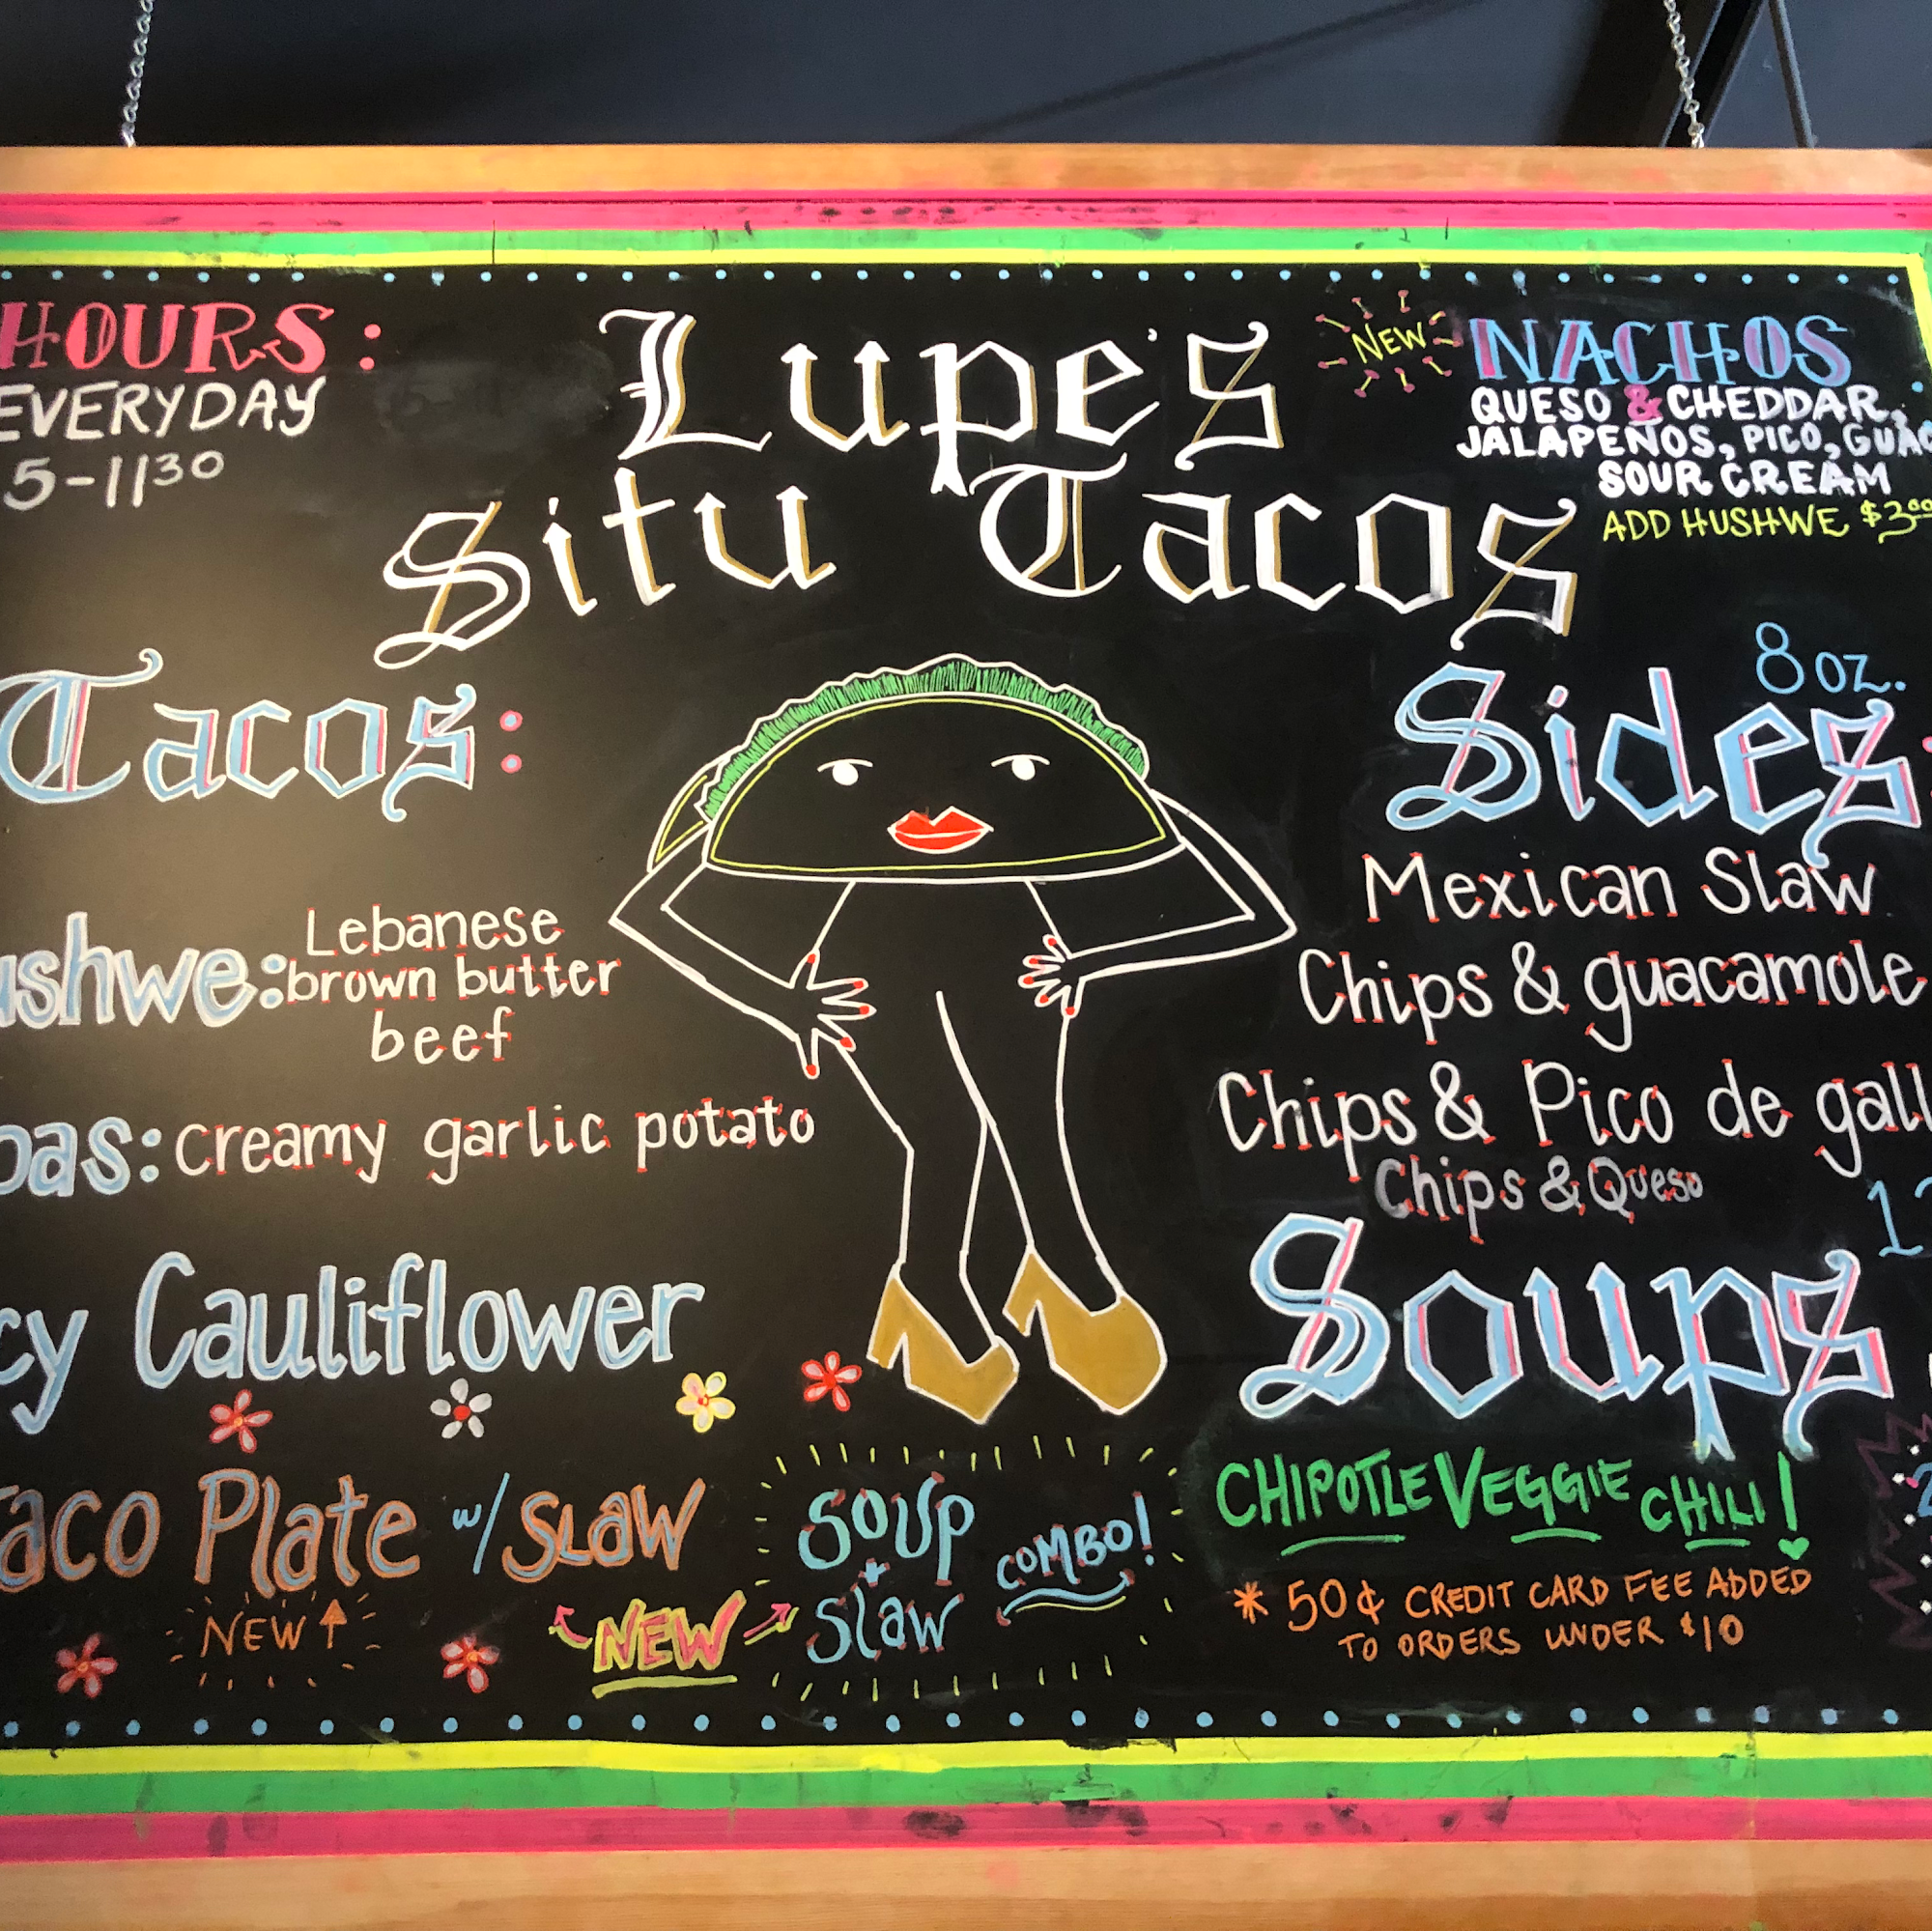 HOURS:
EVERYDAY
5-11³⁰
Lupe's
Situ Tacos
NEW
NACHOS
QUESO & CHEDDAR,
JALAPEÑOS, PICO, GUAC
SOUR CREAM
ADD HUSHWE $3⁰⁰
Tacos:
ushwe: Lebanese
brown butter
beef
pas: creamy garlic potato
cy Cauliflower
Taco Plate w/ SLAW
NEW
NEW
SOUP
+
Slaw
COMBO!
8 oz.
Sides:
Mexican Slaw
Chips & guacamole
Chips & Pico de gall
Chips & Queso
Soups
CHIPOTLE VEGGIE CHILI!
* 50¢ CREDIT CARD FEE ADDED
TO ORDERS UNDER $10